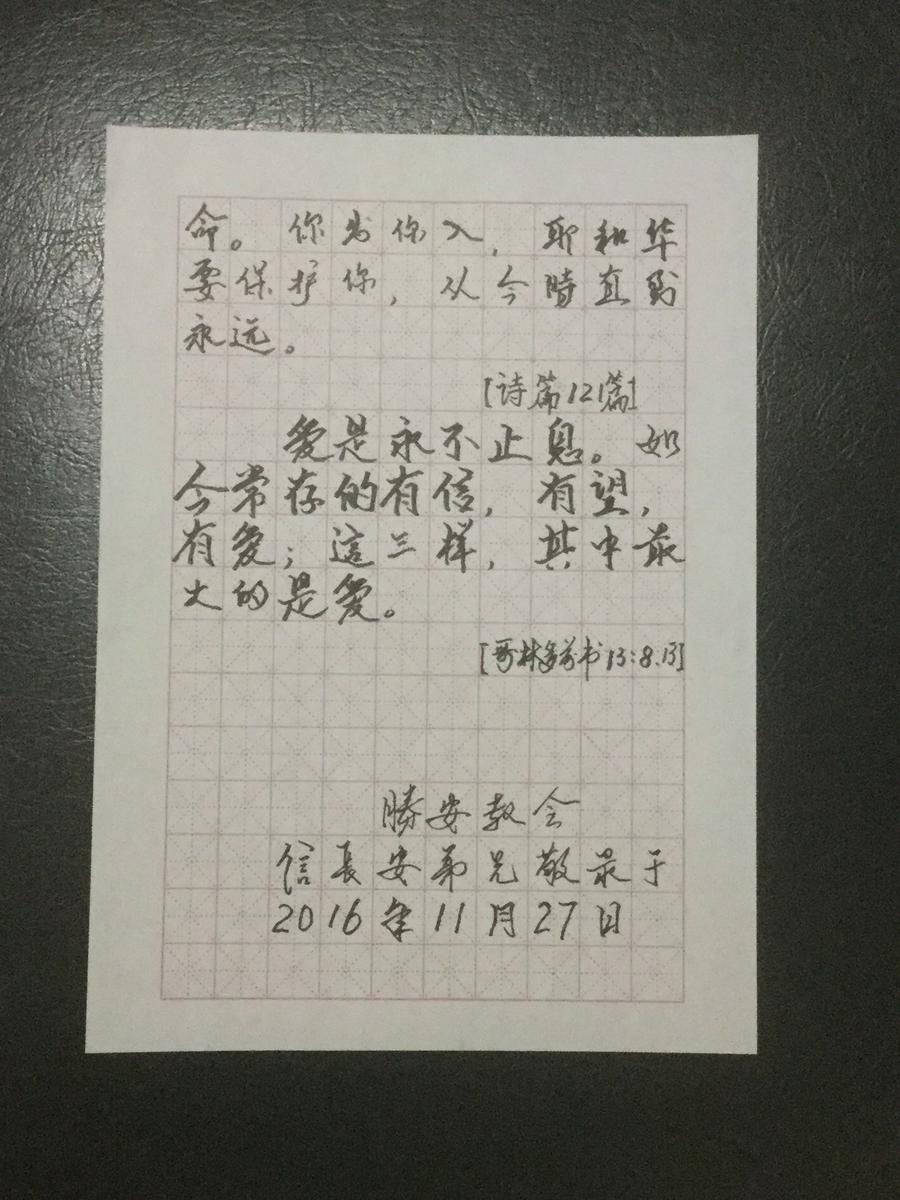 命。你出你入，耶和华
要保护你，从今時直到
永远。
[诗篇121篇]
爱是永不止息。如
今常存的有信，有望，
有爱；這三样，其中最
大的是爱。
[哥林多前书13:8.13]
勝安教会
信長安弟兄敬录于
2016年11月27日